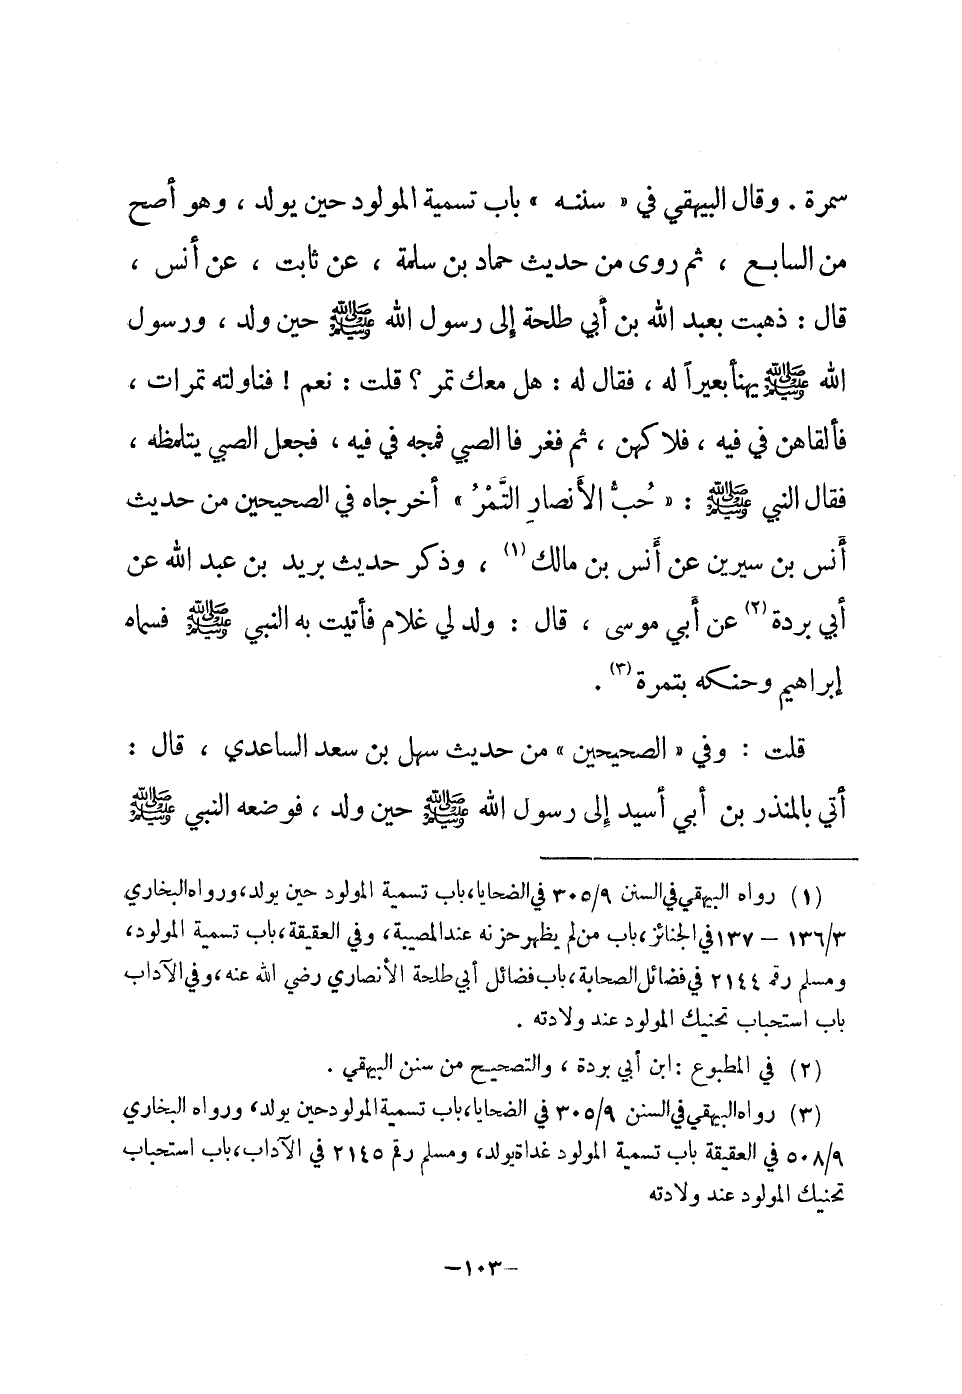 سمرة . وقال البيهقي في « سننه » باب تسمية المولود حين يولد ، وهو أصح
من السابع ، ثم روى من حديث حماد بن سلمة ، عن ثابت ، عن أنس ،
قال : ذهبت بعبد الله بن أبي طلحة إلى رسول الله ﷺ حين ولد ، ورسول
الله ﷺ يهنأ بعيراً له ، فقال له : هل معك تمر ؟ قلت : نعم ! فناولته تمرات ،
فألقاهن في فيه ، فلاكهن ، ثم فغر فا الصبي فمجه في فيه ، فجعل الصبي يتلمظه ،
فقال النبي ﷺ : « حُبُّ الأَنصارِ التَّمْرُ » أخرجاه في الصحيحين من حديث
أَنس بن سيرين عن أَنس بن مالك (١) ، وذكر حديث بريد بن عبد الله عن
أبي بردة (٢) عن أَبي موسى ، قال : ولد لي غلام فأتيت به النبي ﷺ فسماه
إبراهيم وحنكه بتمرة (٣) .
قلت : وفي « الصحيحين » من حديث سهل بن سعد الساعدي ، قال :
أتي بالمنذر بن أبي أسيد إلى رسول الله ﷺ حين ولد ، فوضعه النبي ﷺ
(١) رواه البيهقي في السنن ٣٠٥/٩ في الضحايا، باب تسمية المولود حين يولد، ورواه البخاري
١٣٦/٣ – ١٣٧ في الجنائز، باب من لم يظهر حزنه عند المصيبة، وفي العقيقة، باب تسمية المولود،
ومسلم رقم ٢١٤٤ في فضائل الصحابة، باب فضائل أبي طلحة الأنصاري رضي الله عنه، وفي الآداب
باب استحباب تحنيك المولود عند ولادته .
(٢) في المطبوع : ابن أبي بردة ، والتصحيح من سنن البيهقي .
(٣) رواه البيهقي في السنن ٣٠٥/٩ في الضحايا، باب تسمية المولود حين يولد، ورواه البخاري
٥٠٨/٩ في العقيقة باب تسمية المولود غداة يولد، ومسلم رقم ٢١٤٥ في الآداب، باب استحباب
تحنيك المولود عند ولادته
–١٠٣–